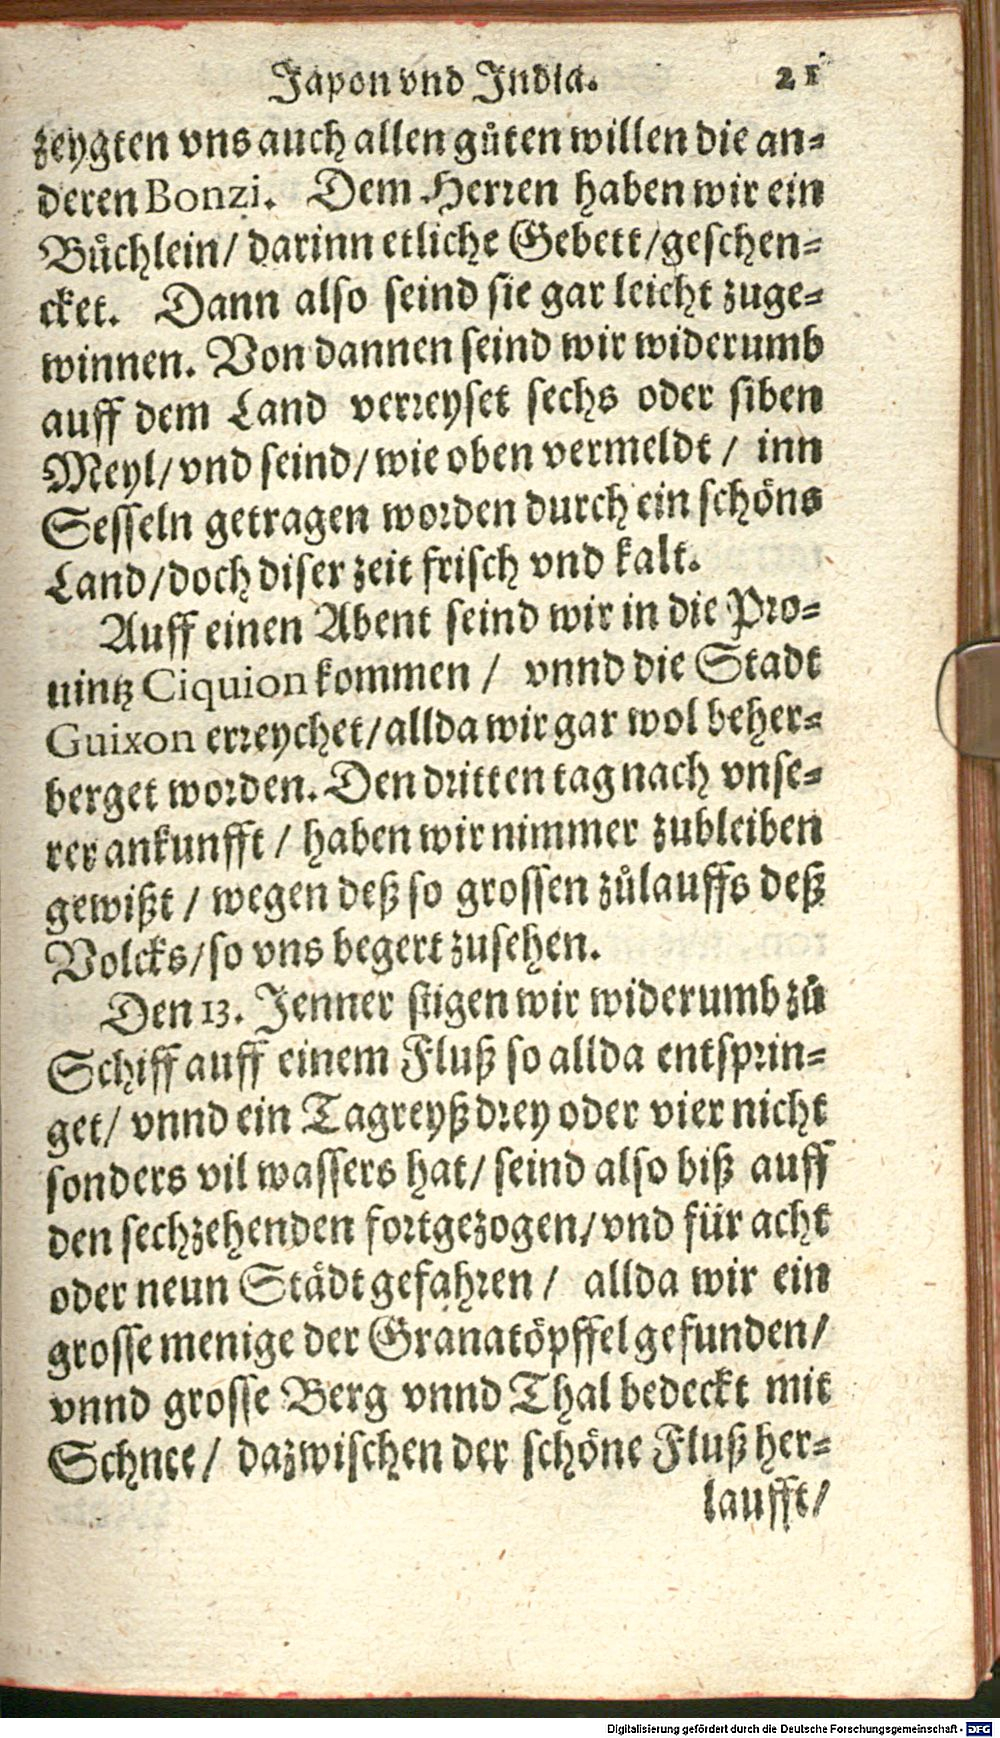 Japon vnd India. 21
zeygten vns auch allen gůten willen die an-
deren Bonzi. Dem Herren haben wir ein
Bůchlein/ darinn etliche Gebett/geschen-
cket. Dann also seind sie gar leicht zuge-
winnen. Von dannen seind wir widerumb
auff dem Land verreyset sechs oder siben
Meyl/vnd seind/wie oben vermeldt/ inn
Sesseln getragen worden durch ein schöns
Land/doch diser zeit frisch vnd kalt.
Auff einen Abent seind wir in die Pro-
uintz Ciquion kommen/ vnnd die Stadt
Guixon erreychet/allda wir gar wol beher-
berget worden. Den dritten tag nach vnse-
rer ankunfft/ haben wir nimmer zubleiben
gewißt/ wegen deß so grossen zůlauffs deß
Volcks/so vns begert zusehen.
Den 13. Jenner stigen wir widerumb zů
Schiff auff einem Fluß so allda entsprin-
get/ vnnd ein Tagreyß drey oder vier nicht
sonders vil wassers hat/ seind also biß auff
den sechzehenden fortgezogen/vnd für acht
oder neun Städt gefahren/ allda wir ein
grosse menige der Granatöpffel gefunden/
vnnd grosse Berg vnnd Thal bedeckt mit
Schnee/ dazwischen der schöne Fluß her-
laufft/
Digitalisierung gefördert durch die Deutsche Forschungsgemeinschaft - DFG